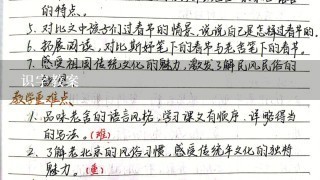 的特点。
5. 对比文中孩子们过春节的情景,说说自己是怎样过春节的。
6. 拓展阅读,对比斯好笔下的春节与老舍笔下的春节。
7. 感受祖国传统文化的魅力,激发了解民风民俗的
识字教案
教学重难点
1. 品味老舍的语言风格,学习课文有顺序、详略得当
的写法。(难)
2. 了解老北京的风俗习惯,感受传统年文化的独特
魅力。(重)